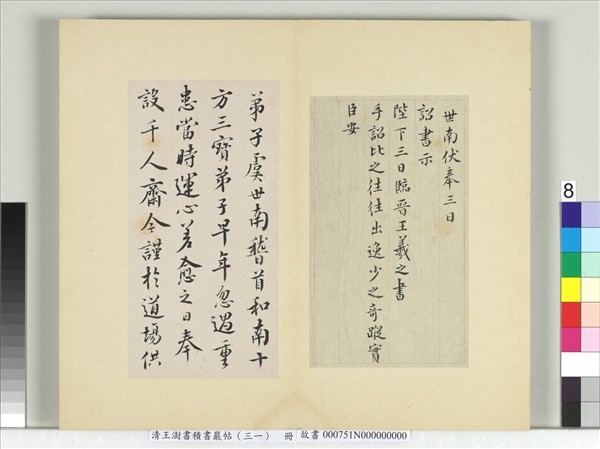 世南伏奉三日
詔書示
陛下三日臨晉王羲之書
手詔比之往往出逸少之奇蹤實
臣安
弟子虞世南稽首和南十
方三寶弟子早年忽遇重
患當時運心差愈之日奉
設千人齋今謹於道場供
8
清王澍書積書巖帖(三一) 冊 故書 000751N000000000